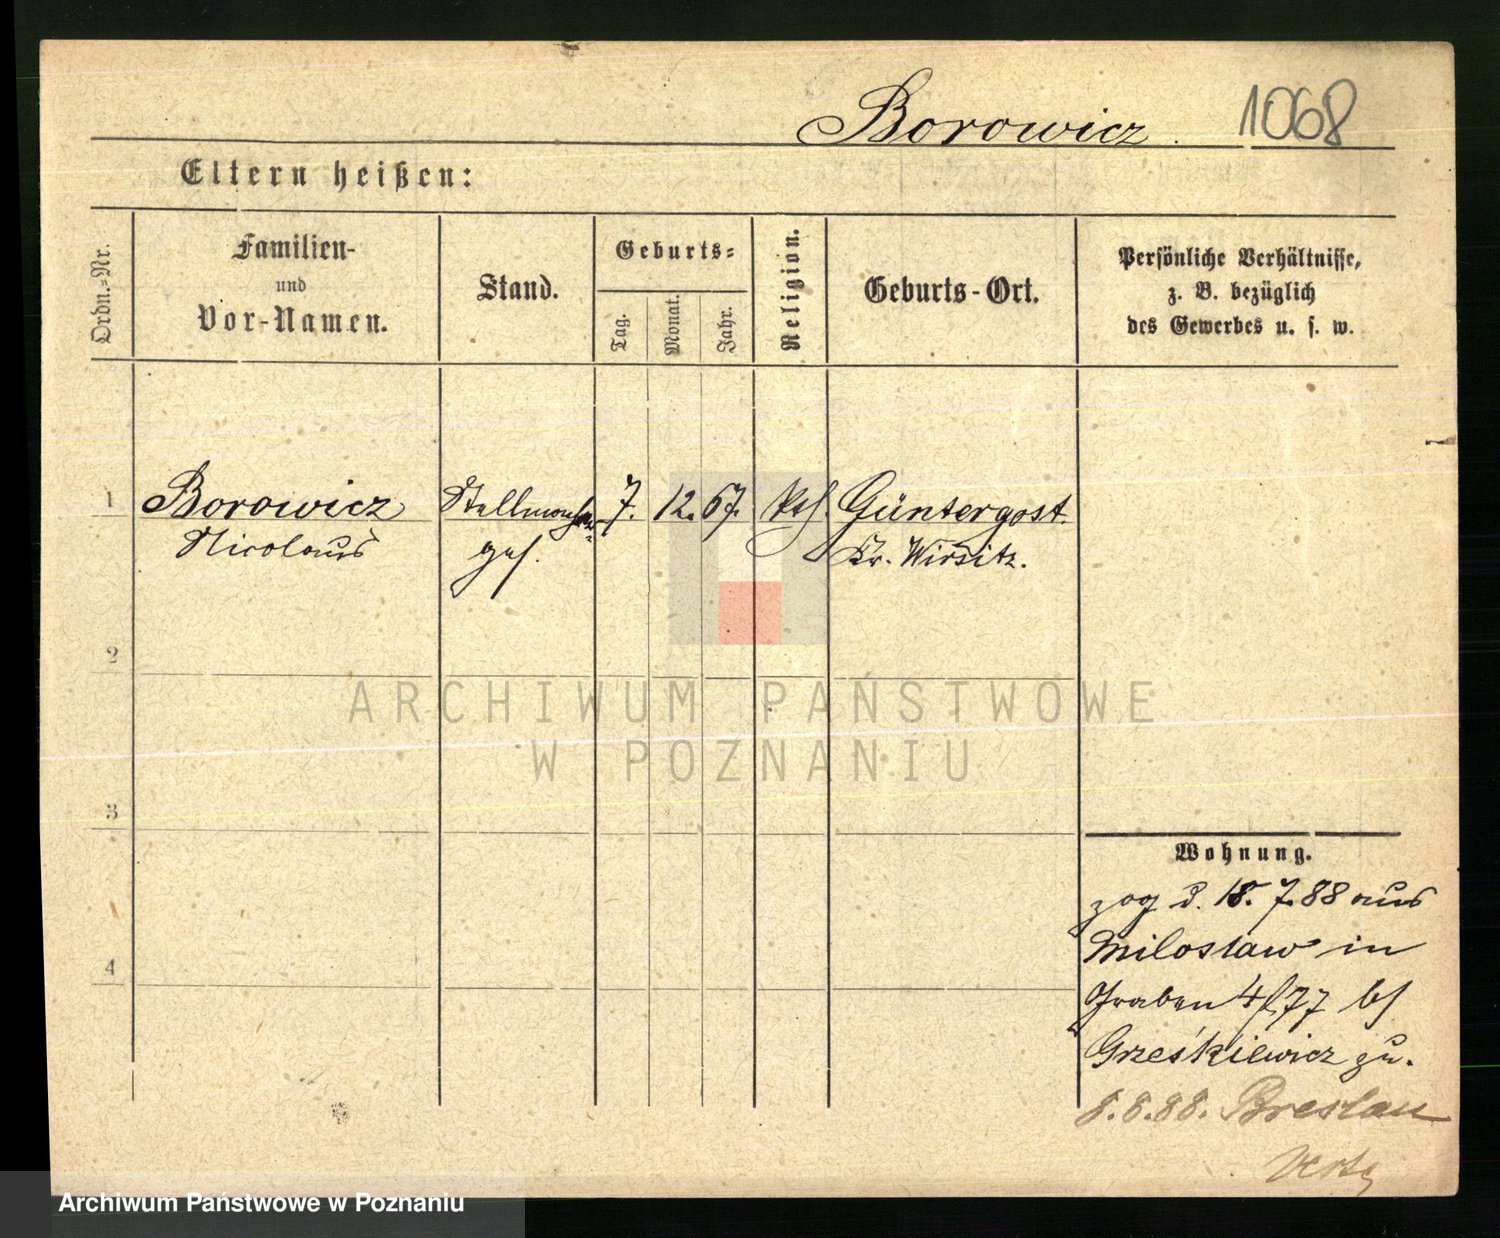 Borowicz 1068
Eltern heißen:
Ordn.-Nr.
Familien-
und
Vor-Namen.
Stand.
Geburts-
Tag.
Monat.
Jahr.
Religion.
Geburts-Ort.
Persönliche Verhältnisse,
z. B. bezüglich
des Gewerbes u. s. w.
1 Borowicz Stellmacher 7. 12. 67. kth. Güntergost
Nicolaus ges. Kr. Wirsitz.
2
3
4
ARCHIWUM PAŃSTWOWE
W POZNANIU
Wohnung.
zog d. 18. 7. 88 aus
Miloslaw in
Graben 4/77 bei
Grześkiewicz zu.
8.8.88. Breslau
Archiwum Państwowe w Poznaniu